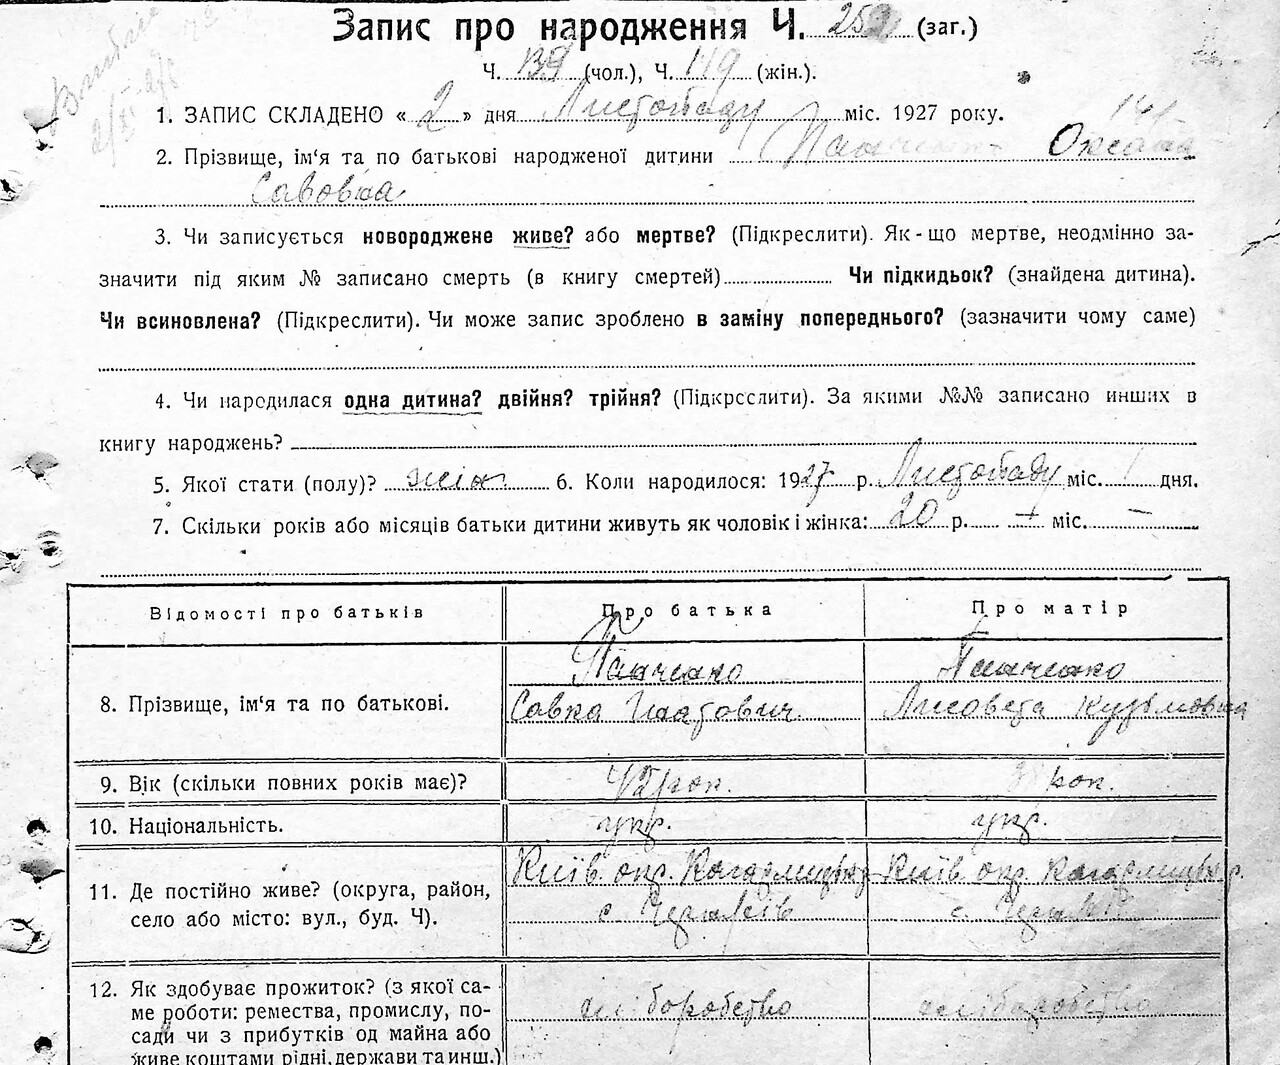 Запис про народження Ч. 25 (заг.)
Ч. 139 (чол.), Ч. 119 (жін.).
1. ЗАПИС СКЛАДЕНО « 2 » дня Листопаду міс. 1927 року.
141
2. Прізвище, ім‘я та по батькові народженої дитини Панченко Оксана
Савовна
3. Чи записується новороджене живе? або мертве? (Підкреслити). Як-що мертве, неодмінно за-
значити під яким № записано смерть (в книгу смертей) Чи підкидьок? (знайдена дитина).
Чи всиновлена? (Підкреслити). Чи може запис зроблено в заміну попереднього? (зазначити чому саме)
4. Чи народилася одна дитина? двійня? трійня? (Підкреслити). За якими №№ записано инших в
книгу народжень?
5. Якої стати (полу)? жін. 6. Коли народилося: 1927 р. Листопаду міс. 1 дня.
7. Скільки років або місяців батьки дитини живуть як чоловік і жінка: 20 р. — міс. —
Відомості про батьків Про батька Про матір
Панченко Панченко
8. Прізвище, ім‘я та по батькові. Савка Ігнатович Лисовета Кузьмовна
9. Вік (скільки повних років має)? 42 рок. рок.
10. Національність. укр. укр.
Київ. окр. Кагарлицьк. Київ. окр. Кагарлицьк. р.
11. Де постійно живе? (округа, район,
село або місто: вул., буд. Ч). с. с.
12. Як здобуває прожиток? (з якої са-
ме роботи: ремества, промислу, по- хліборобство хліборобство
сади чи з прибутків од майна або
живе коштами рідні, держави та инш.)